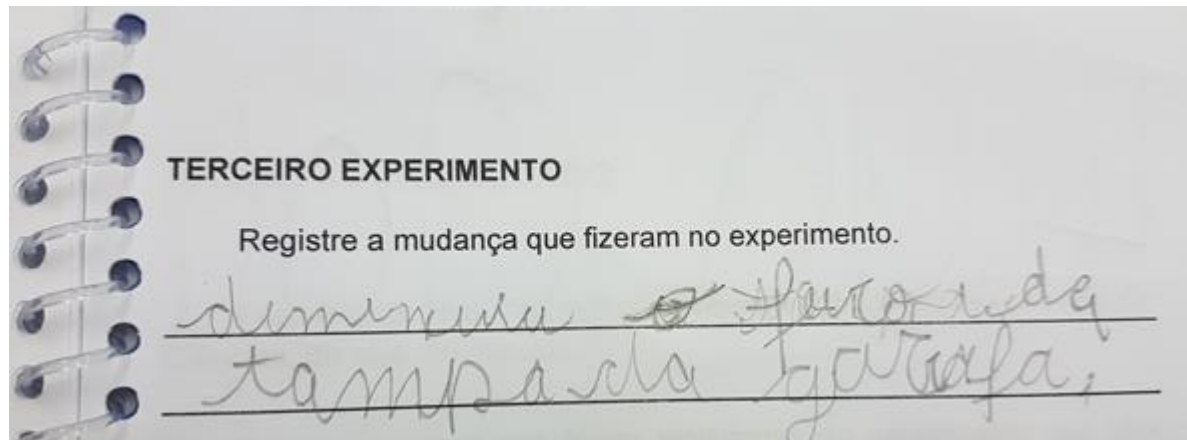 TERCEIRO EXPERIMENTO
Registre a mudança que fizeram no experimento.
diminuiu o da
tampa da garafa,